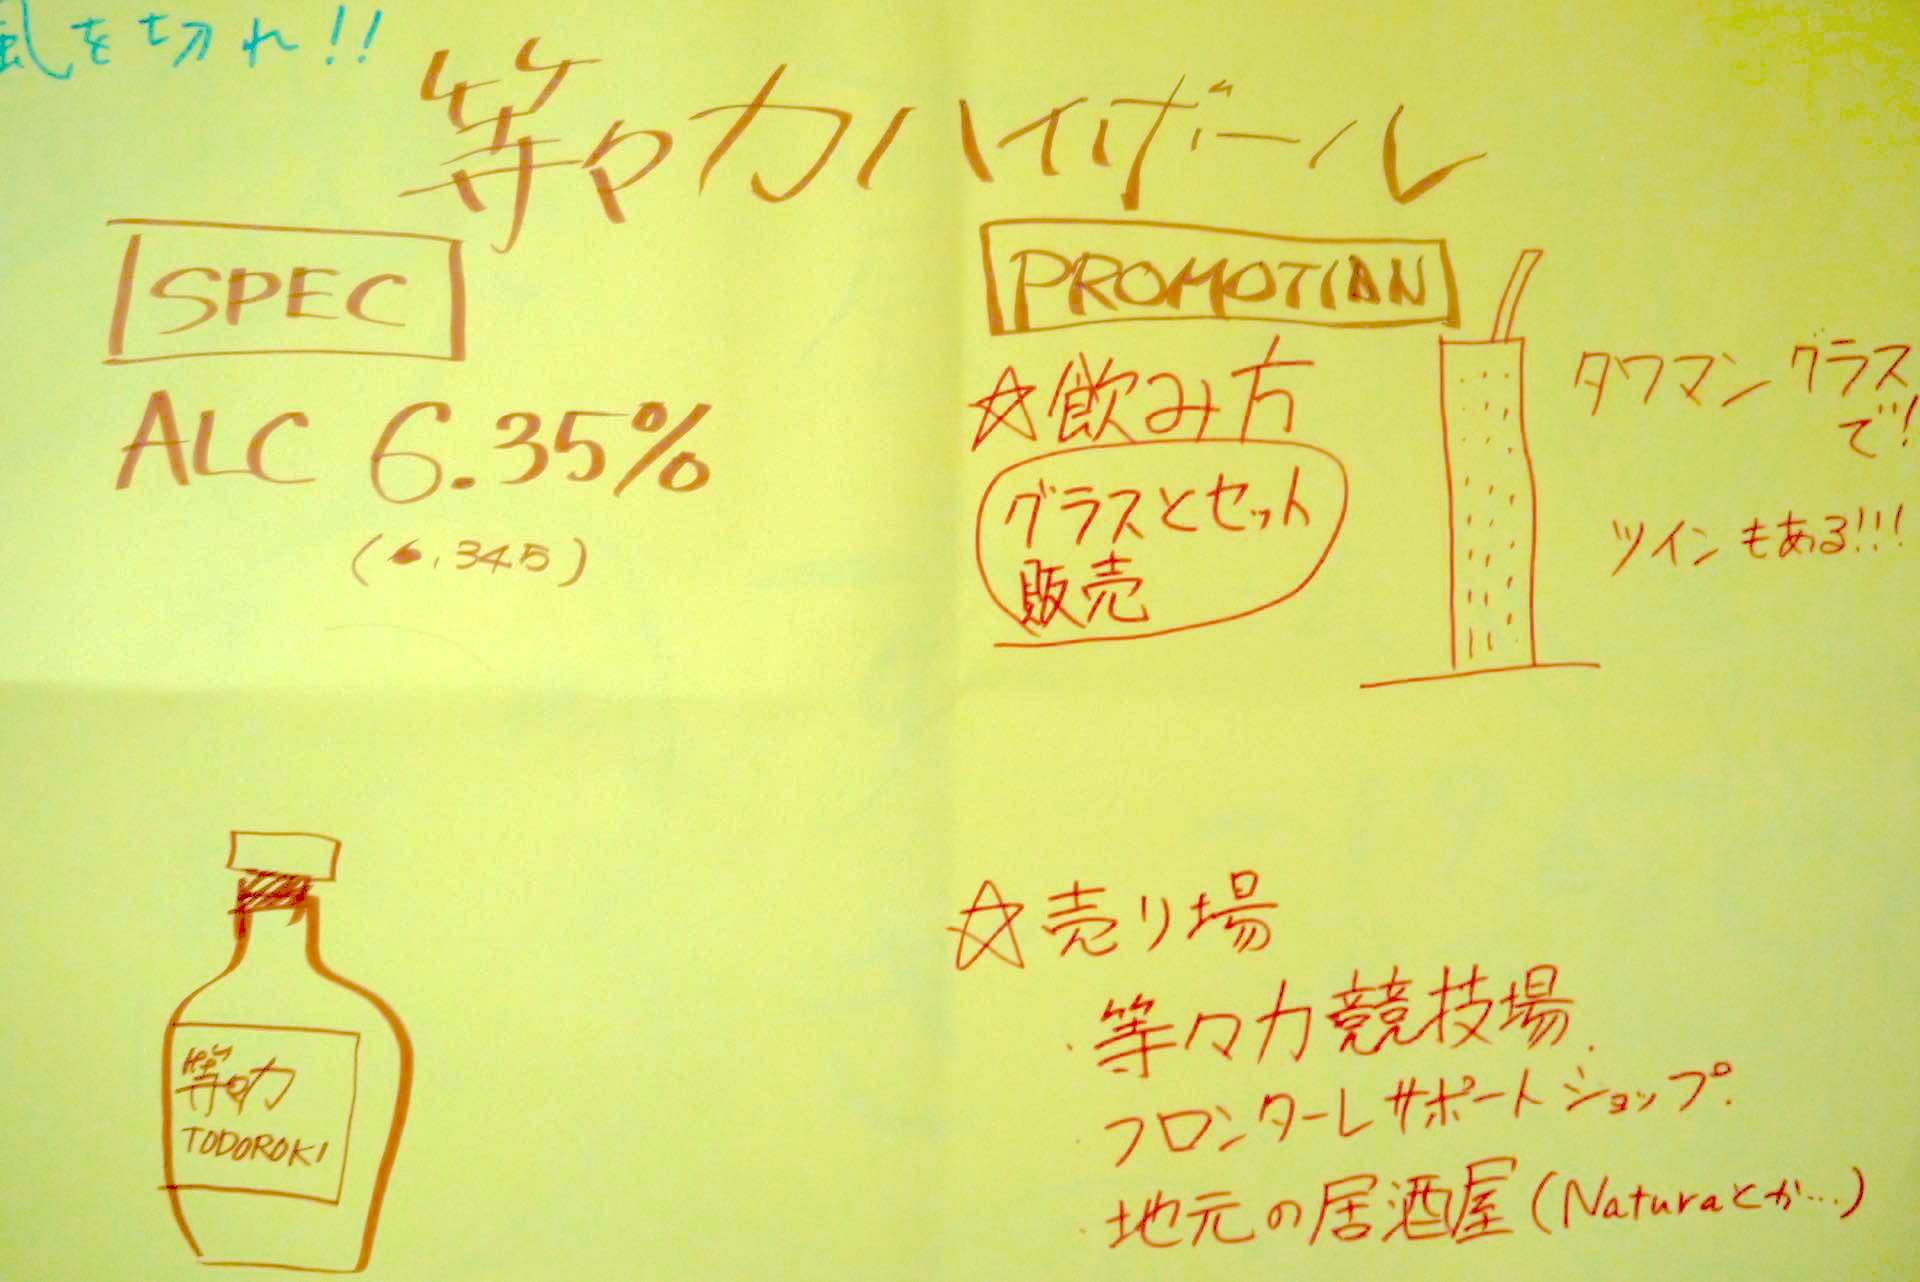 風を切れ!!
等々力ハイボール
SPEC
ALC 6.35%
(6.345)
等々力
TODOROKI
PROMOTIAN
☆飲み方
グラスとセット
販売
タワマングラス
で!
ツインもある!!!
☆売り場
・等々力競技場
・フロンターレサポートショップ
・地元の居酒屋(Naturaとか…)